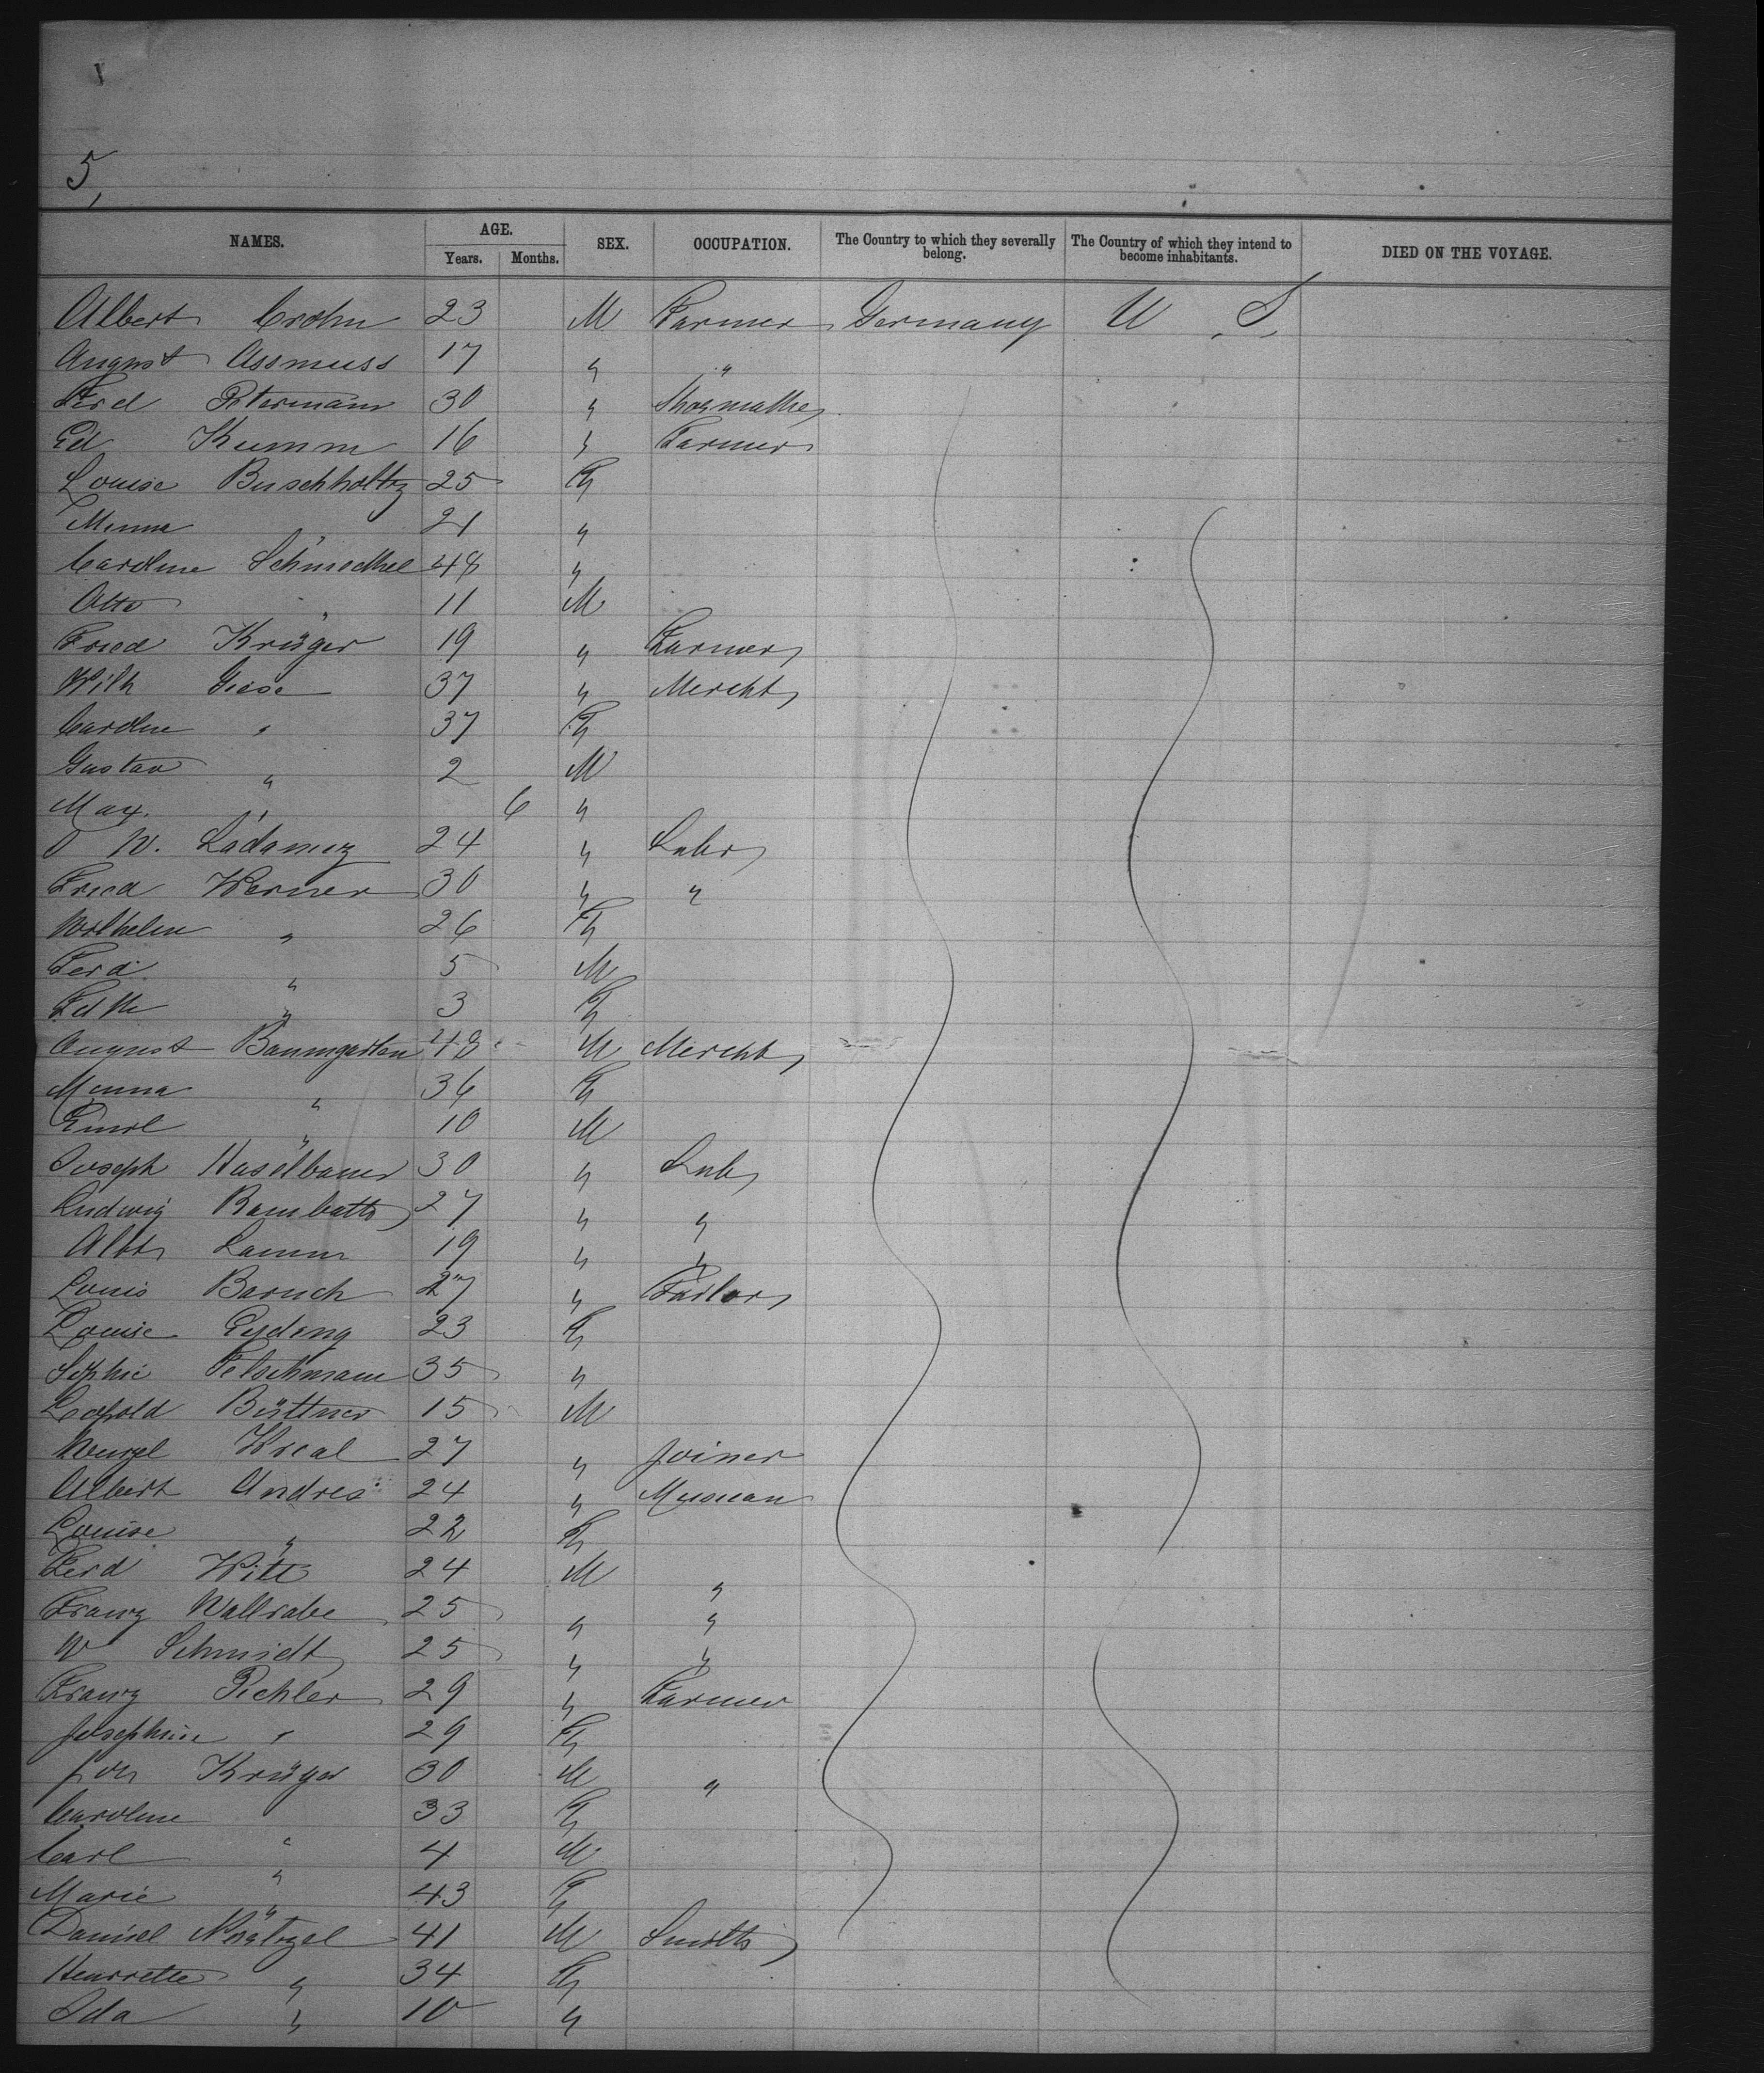 5,
NAMES. AGE. Years. Months. SEX. OCCUPATION. The Country to which they severally belong. The Country of which they intend to become inhabitants. DIED ON THE VOYAGE.
Albert Crohn 23 M Farmer Germany U S
August Assmuss 17 " "
Ferd Petermann 30 " Shoemaker
Ed Kumm 16 " Farmer
Louise Buschholtz 25 F
Minna " 21 "
Caroline Schmechel 48 "
Otto " 11 M
Fried Krüger 19 " Farmer
Wilh Giese 37 " Mercht
Caroline " 37 F
Gustav " 2 M
Max. " 6 "
W. 24 " Labr
Fried Werner 30 " "
Wilhelm " 26 F
Ferd " 5 M
" 3 F
August Baumgarten 48 M Mercht
Minna " 36 F
Emil " 10 M
Joseph Haselbauer 30 " Lab
Ludwig 27 " "
Albt Lamm 19 " "
Louis Baruch 27 " Tailor
Louise 23 F
Sophie 35 "
Leopold Büttner 15 M
Wenzel Kreal 27 " Joiner
Albert Andres 24 " Musican
Louise " 22 F
Ferd Witt 24 M "
Franz Wallrabe 25 " "
W Schmidt 25 " "
Franz Pichler 29 " Farmer
Josephine " 29 F
Joh Krüger 30 M "
Caroline " 33 F
Carl " 4 M
Marie " 43 F
Daniel 41 M Smith
Henriette " 34 F
Ida " 10 "